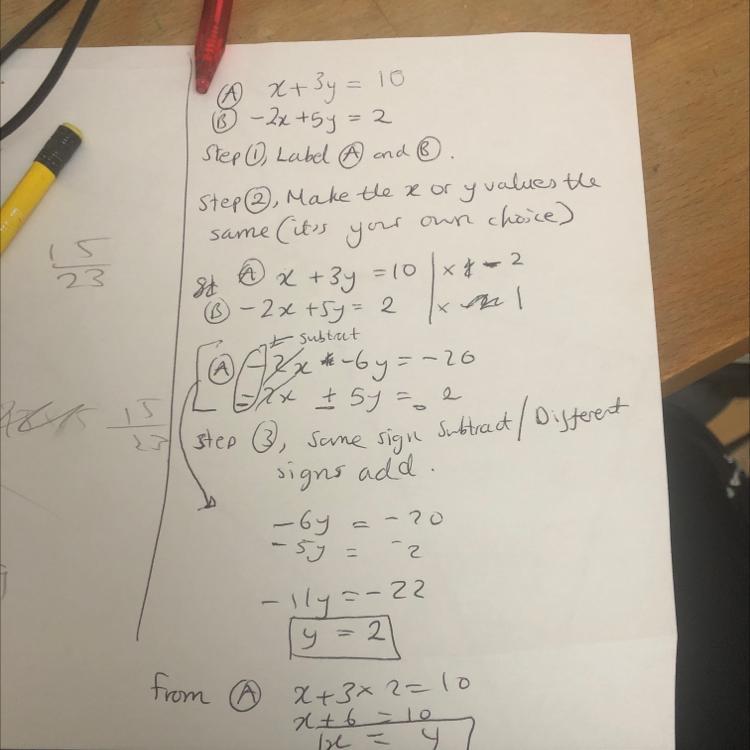 Ⓐ x+3y = 10
Ⓑ -2x+5y = 2
Step ①, Label Ⓐ and Ⓑ.
Step ②, Make the x or y values the
same (it's your own choice)
Ⓐ x + 3y = 10 | x - 2
Ⓑ -2x +5y = 2 | x 1
subtract
Ⓐ -2x -6y = -20
-2x ± 5y = 2
Step ③, same sign subtract / Different
signs add.
-6y = -20
-5y = -2
-11y = -22
y = 2
From Ⓐ x+3×2=10
x+6 = 10
15
23
15
23